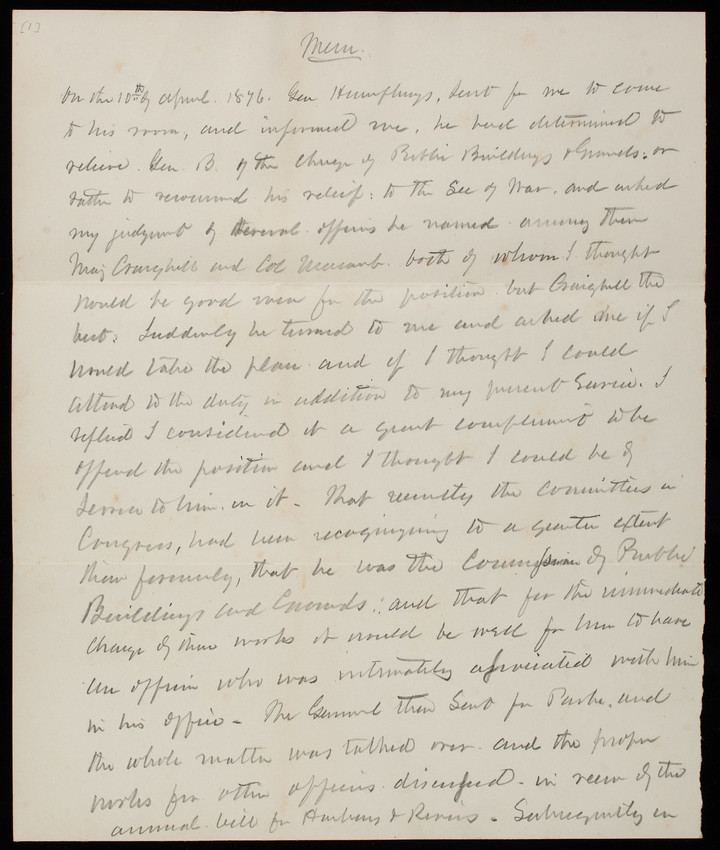 [1]
Mem.
On the 10th of April. 1876. Gen Humphreys, sent for me to come
to his room, and informed me, he had determined to
relieve Gen. B. of the charge of Public Buildings & Grounds: or
rather to recommend his relief: to the Sec of War. and asked
my judgment of several officers he named among them
Maj Craighill and Col Macomb. both of whom I thought
would be good men for the position but Craighill the
best. Suddenly he turned to me and asked me if I
would take the place and if I thought I could
attend to the duty in addition to my present service. I
replied I considered it a great compliment to be
offered the position and I thought I could be of
service to him in it - That recently the Committees in
Congress, had been recognizing to a greater extent
than formerly, that he was the Commissioner of Public
Buildings and Grounds: and that for the immediate
charge of these works it would be well for him to have
an officer who was intimately associated with him
in his office - The General then sent for Parke, and
the whole matter was talked over and the proper
works for other officers discussed - in view of the
annual bill for Harbors & Rivers - Subsequently in